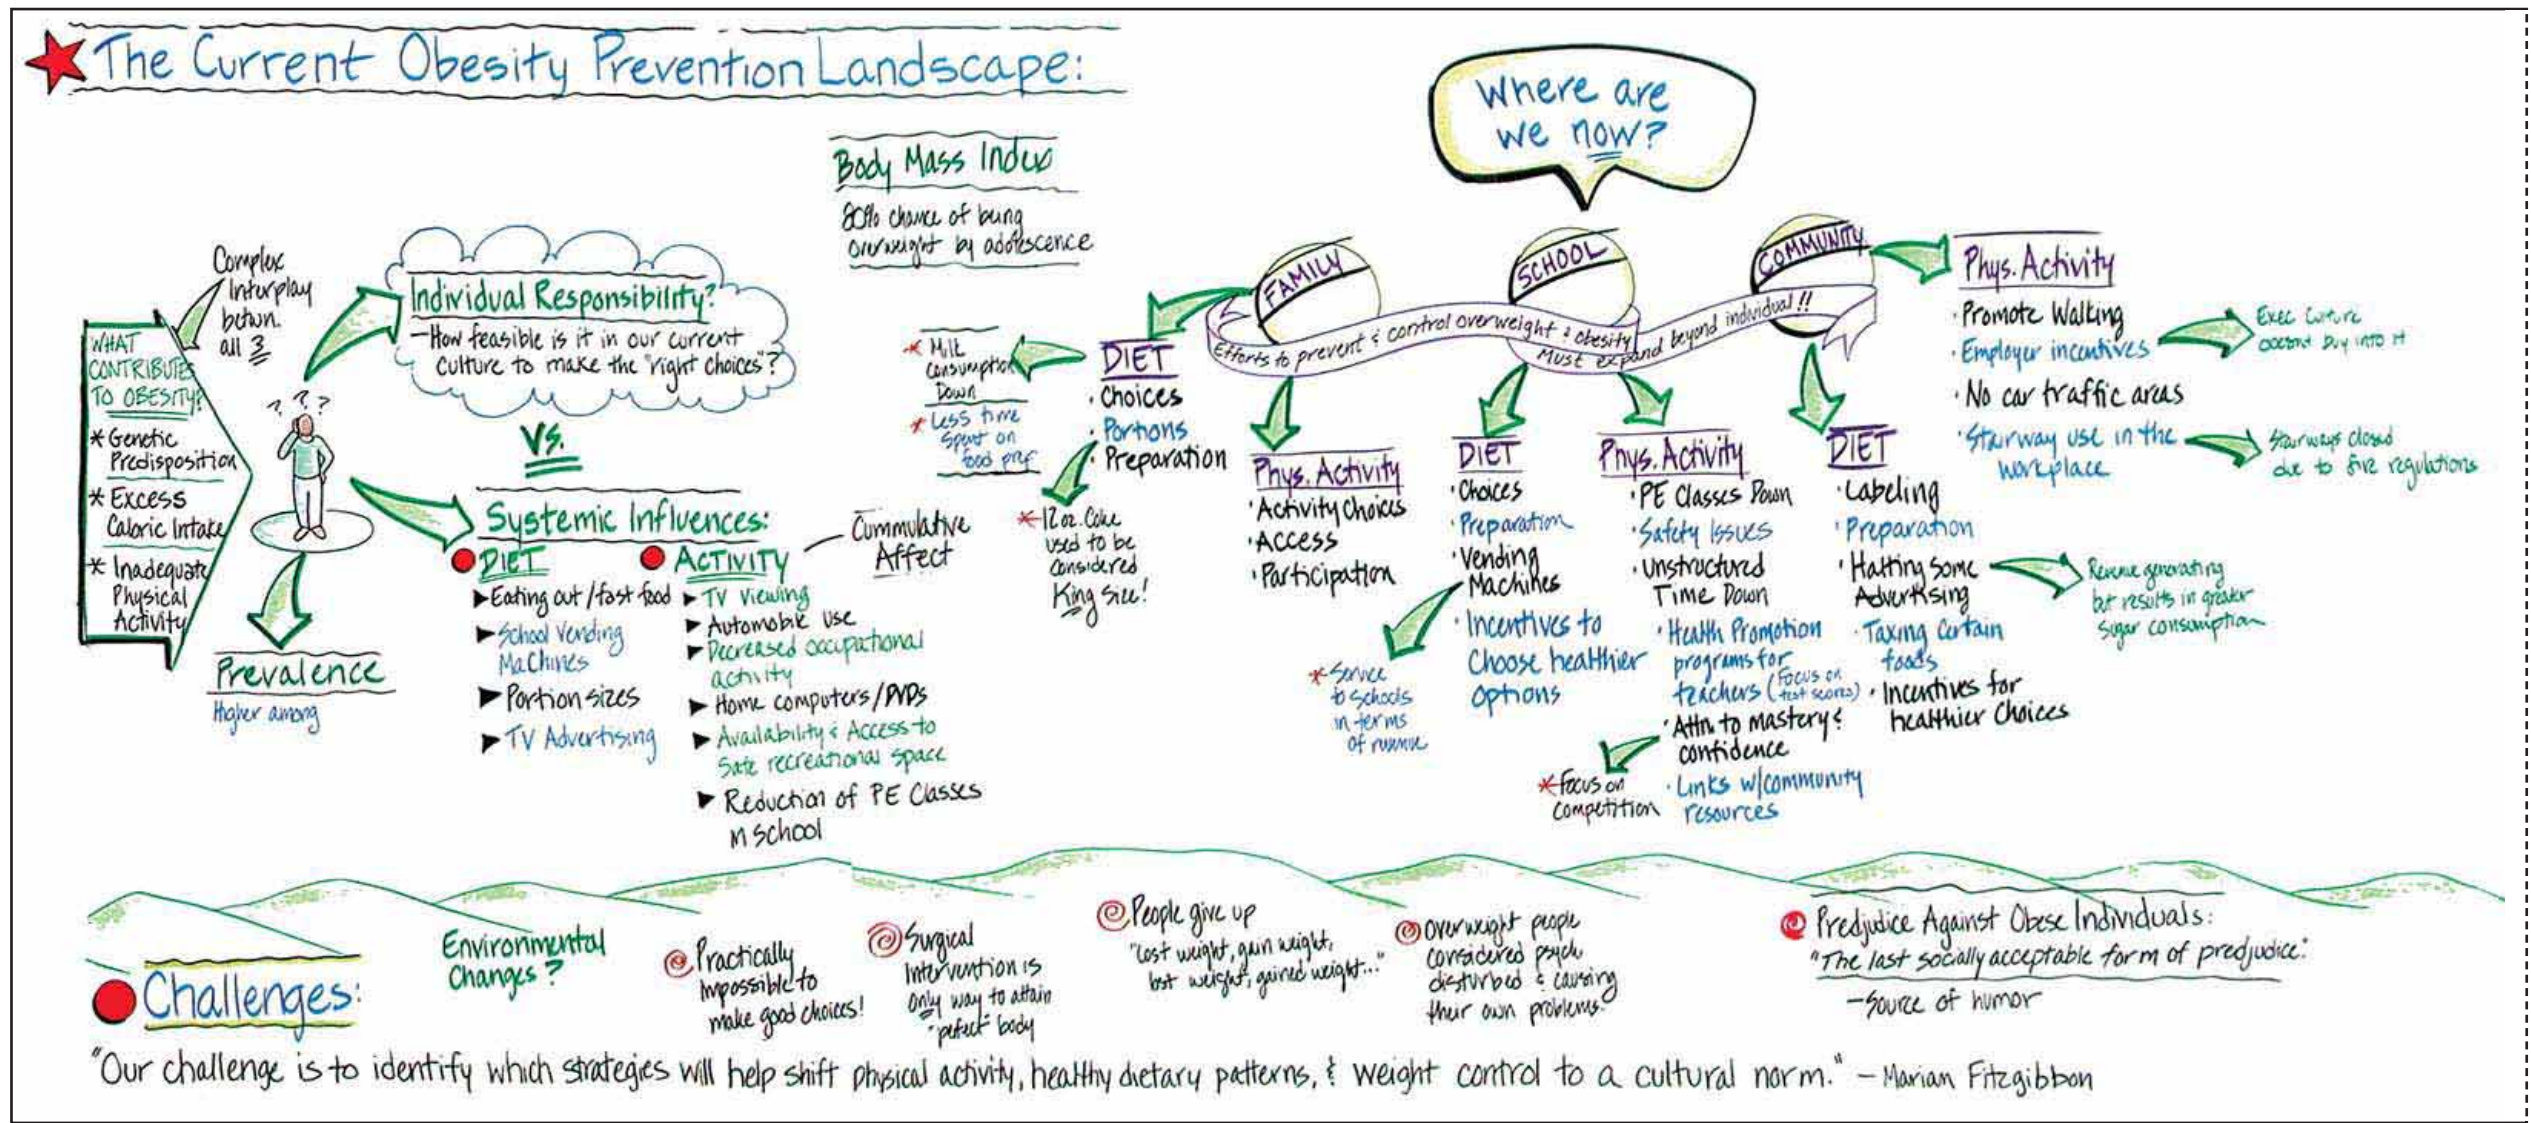 The Current Obesity Prevention Landscape:
Where are
we now?
Body Mass Index
80% chance of being
overweight by adolescence
Complex
Interplay
betwn.
all 3
WHAT
CONTRIBUTES
TO OBESITY?
* Genetic
Predisposition
* Excess
Caloric Intake
* Inadequate
Physical
Activity
? ? ?
Individual Responsibility?
- How feasible is it in our current
culture to make the "right choices"?
VS.
Systemic Influences:
DIET
Eating out/fast food
School Vending
Machines
Portion sizes
TV Advertising
ACTIVITY
TV Viewing
Automobile Use
Decreased occupational
activity
Home computers/DVDs
Availability & Access to
Safe recreational space
Reduction of PE Classes
in School
Cummulative
Affect
Prevalence
Higher among
FAMILY
SCHOOL
COMMUNITY
Efforts to prevent & control overweight & obesity
Must expand beyond individual!!
DIET
· Choices
· Portions
· Preparation
* Milk
Consumption
Down
* Less time
Spent on
food prep
* 12 oz. Coke
used to be
considered
King Size!
Phys. Activity
· Activity Choices
· Access
· Participation
DIET
· Choices
· Preparation
· Vending
Machines
· Incentives to
Choose healthier
Options
* Service
to schools
in terms
of revenue
Phys. Activity
· PE Classes Down
· Safety Issues
· Unstructured
Time Down
· Health Promotion
programs for
teachers (Focus on
test scores)
· Attn. to mastery &
confidence
· Links w/community
resources
* Focus on
competition
DIET
· Labeling
· Preparation
· Halting Some
Advertising
· Taxing Certain
foods
· Incentives for
healthier Choices
Revenue generating
but results in greater
Sugar consumption
Phys. Activity
· Promote Walking
· Employer incentives
· No car traffic areas
· Stairway use in the
workplace
Exec Culture
doesn't buy into it
Stairways closed
due to fire regulations
Challenges:
Environmental
Changes?
Practically
Impossible to
make good choices!
Surgical
Intervention is
only way to attain
"perfect" body
People give up
"Lost weight, gain weight,
lost weight, gained weight..."
Overweight people
considered psych.
disturbed & causing
their own problems.
Predjudice Against Obese Individuals:
"The last socially acceptable form of predjudice."
- Source of humor
"Our challenge is to identify which strategies will help shift physical activity, healthy dietary patterns, & weight control to a cultural norm." - Marian Fitzgibbon